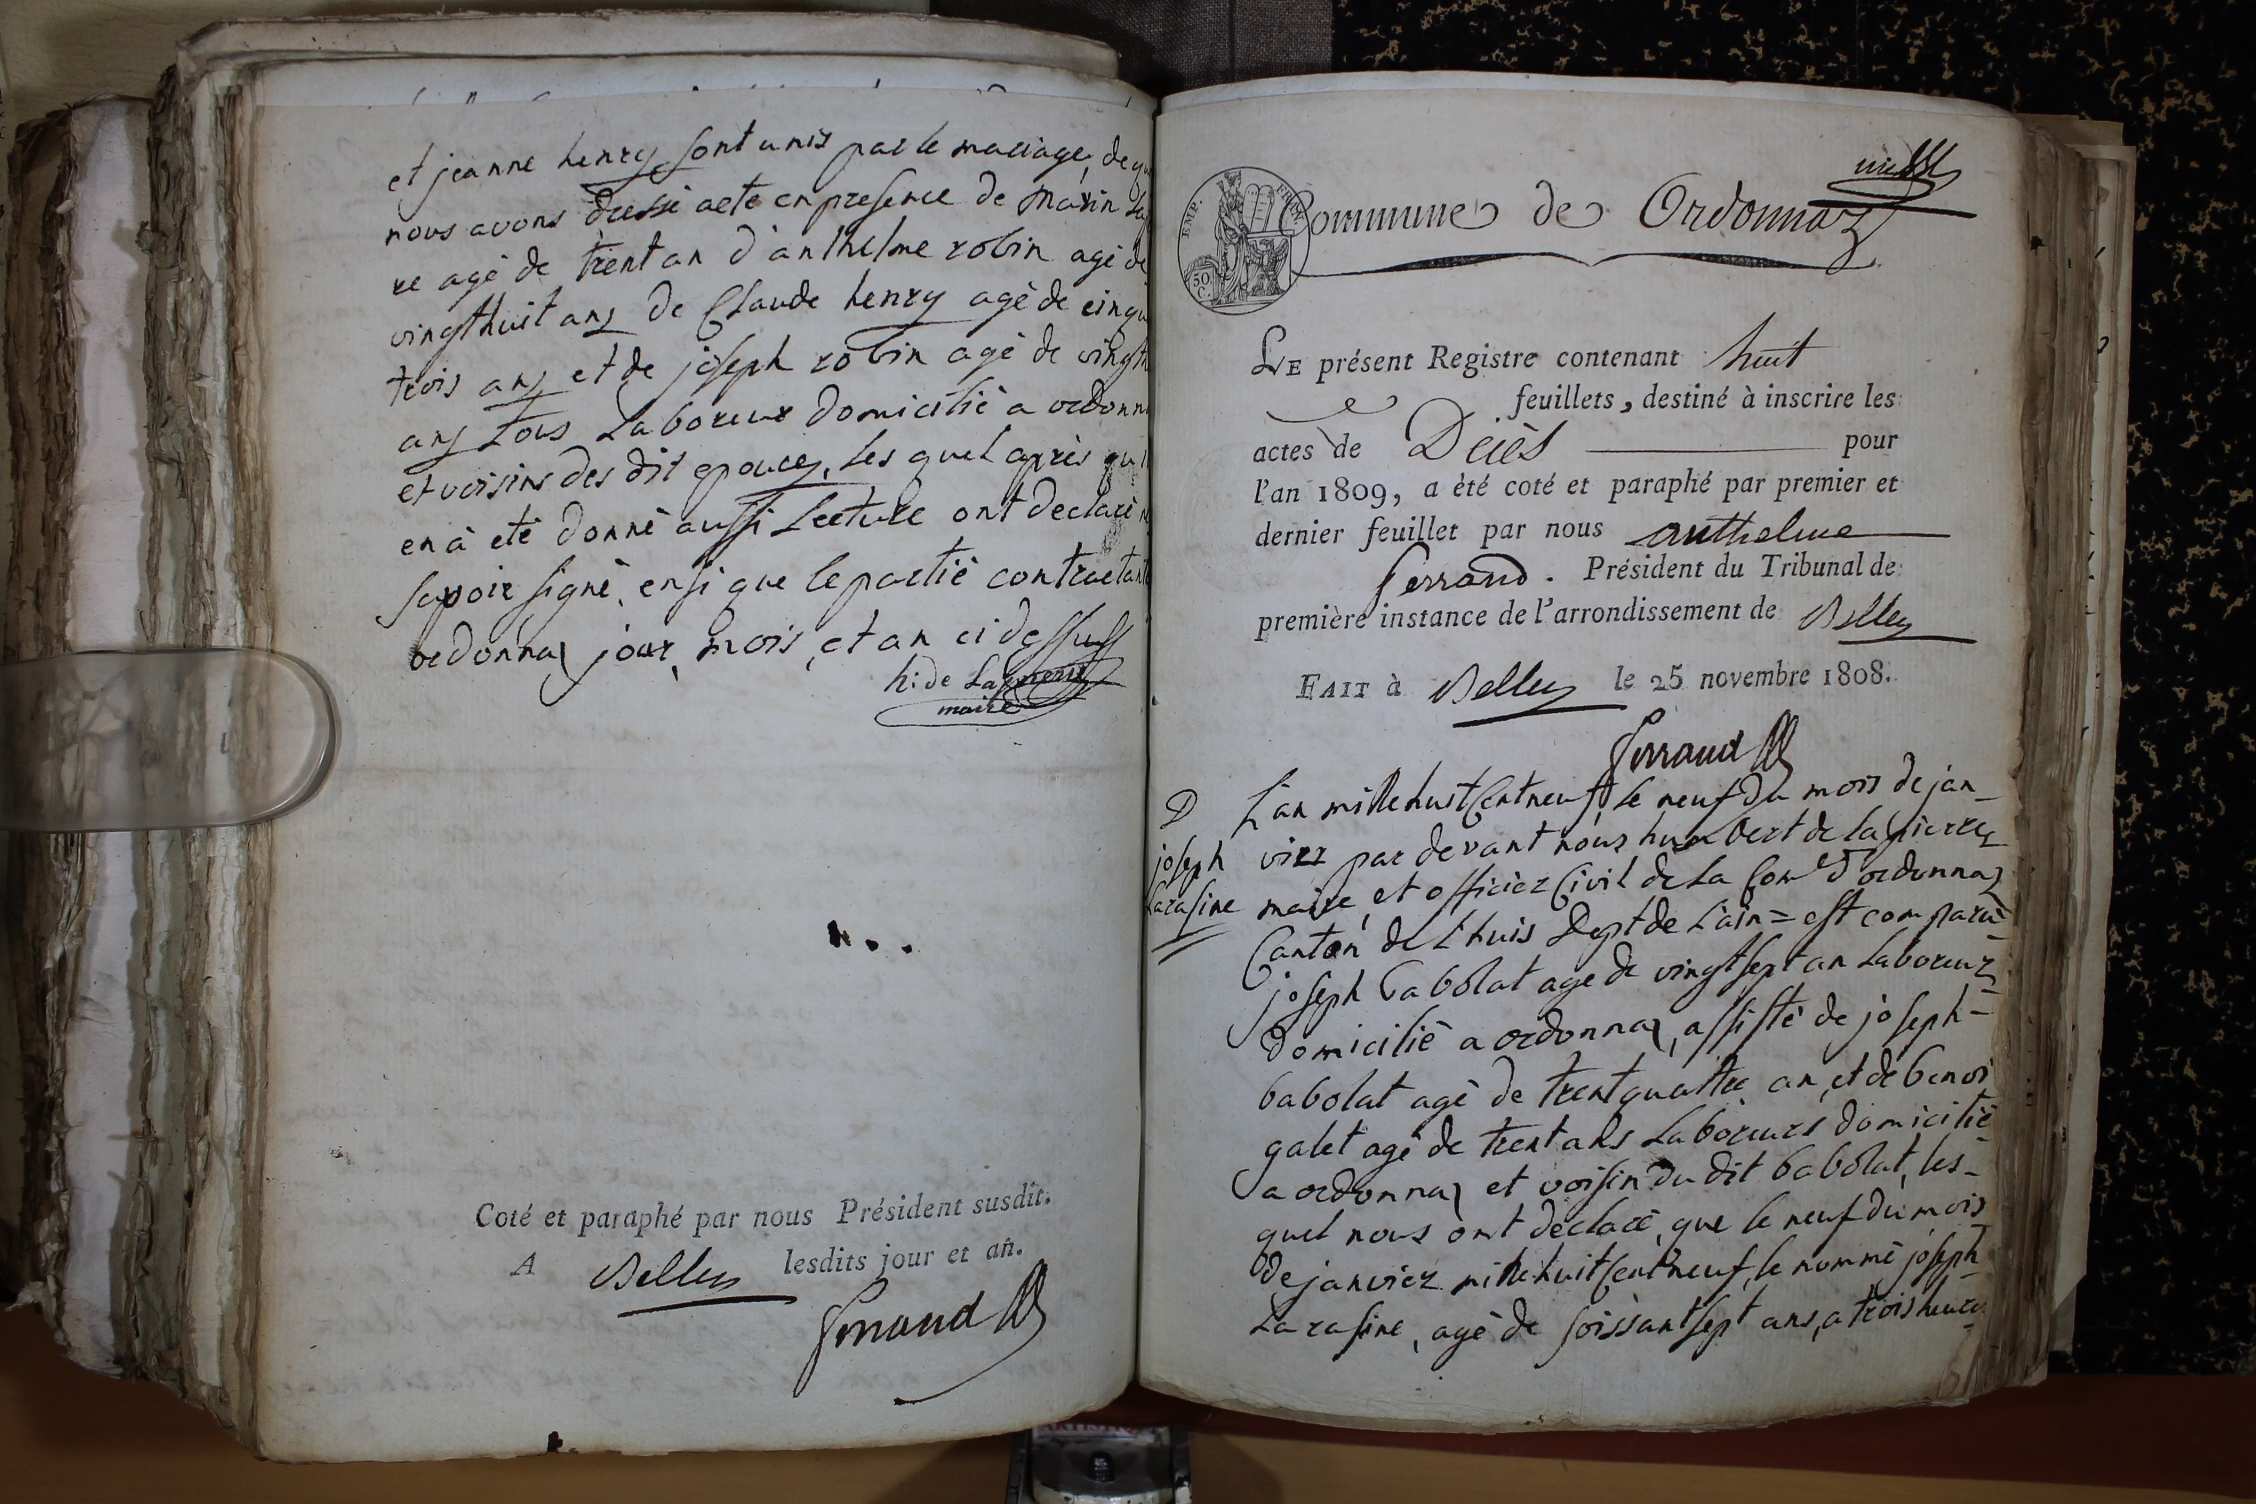 et jeanne henry sont unis par le mariage, de
nous avons dressé acte en presence de marin
re agé de trent an d'anthelme robin agé de
vingthuit ans de Claude henry agé de cinqu
trois ans et de joseph robin agé de vingt
ans tous Laboreur domicilié a ordonn
et voisins des dit epouces, les quel après qu'il
en à eté donné aussi Lecture ont declaré
savoir signé, ensi que le partié contractant
ordonnaz jour, mois, et an ci dessus
h: de Lapierre
maire
Coté et paraphé par nous Président susdit.
A Belley lesdits jour et an.
Ferrand
EMP. FRAN.
50 C.
Commune de Ordonnaz
LE présent Registre contenant huit
feuillets, destiné à inscrire les
actes de Décès pour
l'an 1809, a été coté et paraphé par premier et
dernier feuillet par nous anthelme
ferrand. Président du Tribunal de
première instance de l'arrondissement de Belley
FAIT à Belley le 25 novembre 1808.
Ferrand
D
joseph
Larasine
L'an mille huit Cent neuf, le neuf du mois de jan_
vier par devant nous humbert de lapierre
maire, et officier Civil de La Com.e d'ordonnaz
Canton de Lhuis Dept de L'ain = est comparu
joseph babolat age de vingtsept an Laboreur
domicilié a ordonnaz, assisté de joseph =
babolat agé de trentquattre an, et de benoi
galet agé de trent ans Laboreurs domicilié
a ordonnaz et voisin du dit babolat, les_
quel nous ont déclaré, que le neuf du mois
de janvier mille huit Cent neuf, le nommé joseph
Larasine, agé de soissantsept ans, a trois heure